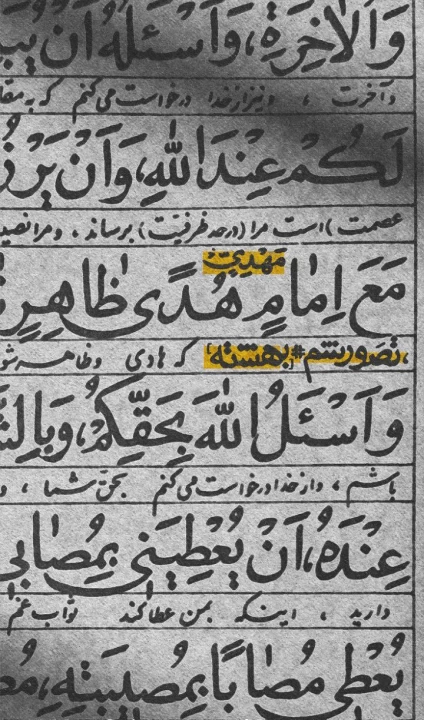 وَالْاخِرَةِ، وَاَسْئَلُهُ اَنْ
وآخرت ، ونیز از خدا درخواست می‌کنم که به
لَكُمْ عِنْدَ اللّٰهِ، وَاَنْ
عصمت)است مرا(درحد ظرفیّت) برساند ، ومرا
مَهْدِيٍّ
مَعَ اِمٰامٍ هُدًى ظٰاهِرٍ
،تصورشم#بهشته که هادی وظاهر
وَاَسْئَلُ اللّٰهَ بِحَقِّكُمْ، وَ
باشم ، واز خدا درخواست می‌کنم بحق شما ،
عِنْدَهُ، اَنْ يُعْطِيَنى بِمُصٰابى
دارید ، اینکه بمن عطا کند ثواب غم
يُعْطى مُصٰابًا بِمُصيبَتِهِ،